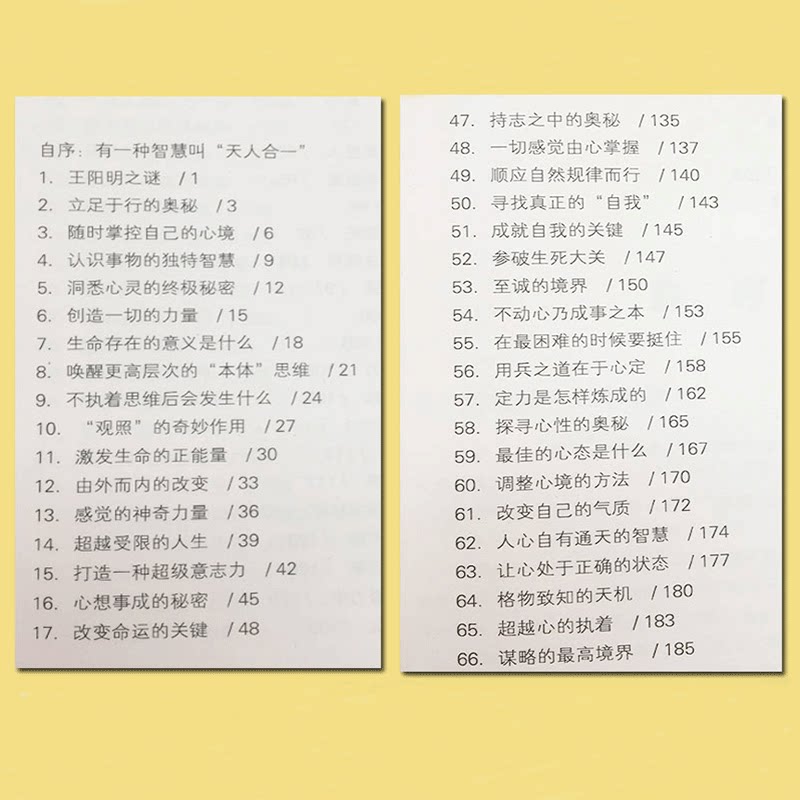 自序：有一种智慧叫“天人合一”
1. 王阳明之谜 / 1
2. 立足于行的奥秘 / 3
3. 随时掌控自己的心境 / 6
4. 认识事物的独特智慧 / 9
5. 洞悉心灵的终极秘密 / 12
6. 创造一切的力量 / 15
7. 生命存在的意义是什么 / 18
8. 唤醒更高层次的“本体”思维 / 21
9. 不执着思维后会发生什么 / 24
10. “观照”的奇妙作用 / 27
11. 激发生命的正能量 / 30
12. 由外而内的改变 / 33
13. 感觉的神奇力量 / 36
14. 超越受限的人生 / 39
15. 打造一种超级意志力 / 42
16. 心想事成的秘密 / 45
17. 改变命运的关键 / 48
47. 持志之中的奥秘 / 135
48. 一切感觉由心掌握 / 137
49. 顺应自然规律而行 / 140
50. 寻找真正的“自我” / 143
51. 成就自我的关键 / 145
52. 参破生死大关 / 147
53. 至诚的境界 / 150
54. 不动心乃成事之本 / 153
55. 在最困难的时候要挺住 / 155
56. 用兵之道在于心定 / 158
57. 定力是怎样炼成的 / 162
58. 探寻心性的奥秘 / 165
59. 最佳的心态是什么 / 167
60. 调整心境的方法 / 170
61. 改变自己的气质 / 172
62. 人心自有通天的智慧 / 174
63. 让心处于正确的状态 / 177
64. 格物致知的天机 / 180
65. 超越心的执着 / 183
66. 谋略的最高境界 / 185